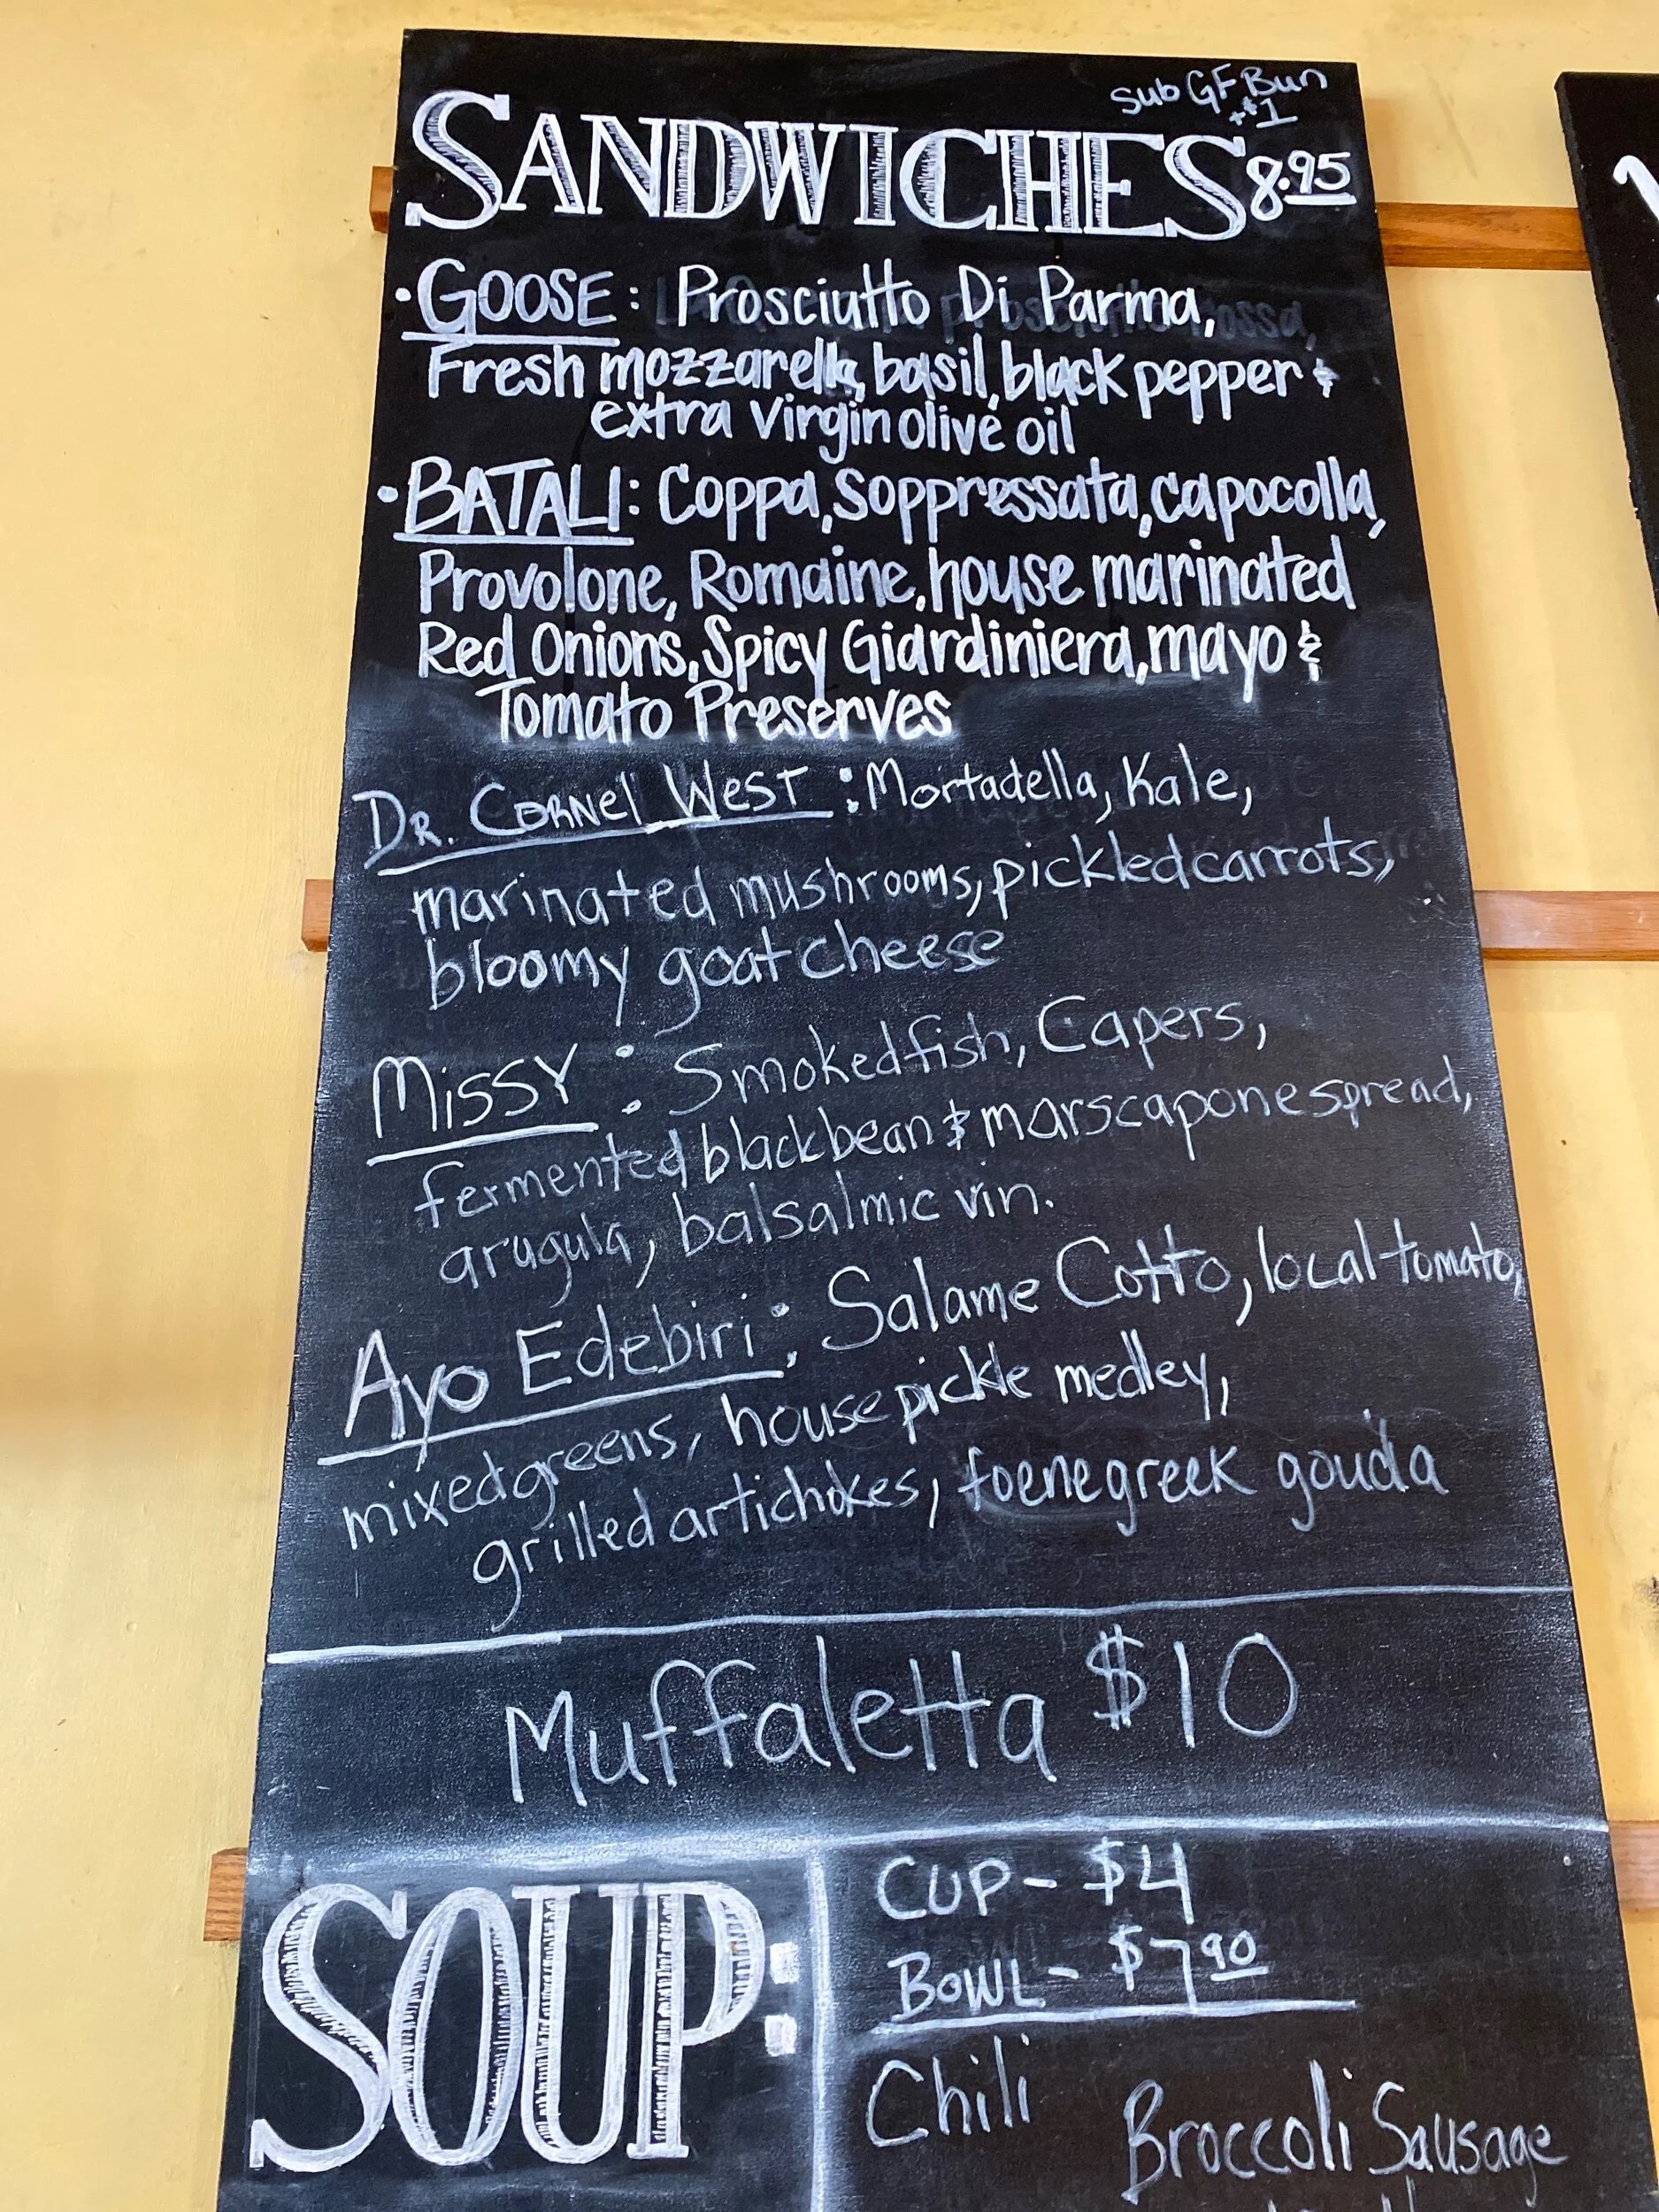 sub GF Bun
+$1
SANDWICHES 8.95
• GOOSE: Prosciutto Di Parma,
Fresh mozzarella, basil, black pepper &
extra virgin olive oil
• BATALI: Coppa, Soppressata, capocolla,
Provolone, Romaine, house marinated
Red Onions, Spicy Giardiniera, mayo &
Tomato Preserves
DR. CORNEl WEST: Mortadella, Kale,
marinated mushrooms, pickled carrots,
bloomy goat cheese
MissY: Smoked fish, Capers,
fermented black bean & marscapone spread,
arugula, balsalmic vin.
Ayo Edebiri: Salame Cotto, local tomato,
mixed greens, house pickle medley,
grilled artichokes, foenegreek gouda
Muffaletta $10
SOUP:
CUP - $4
BOWL - $7.90
Chili
Broccoli Sausage